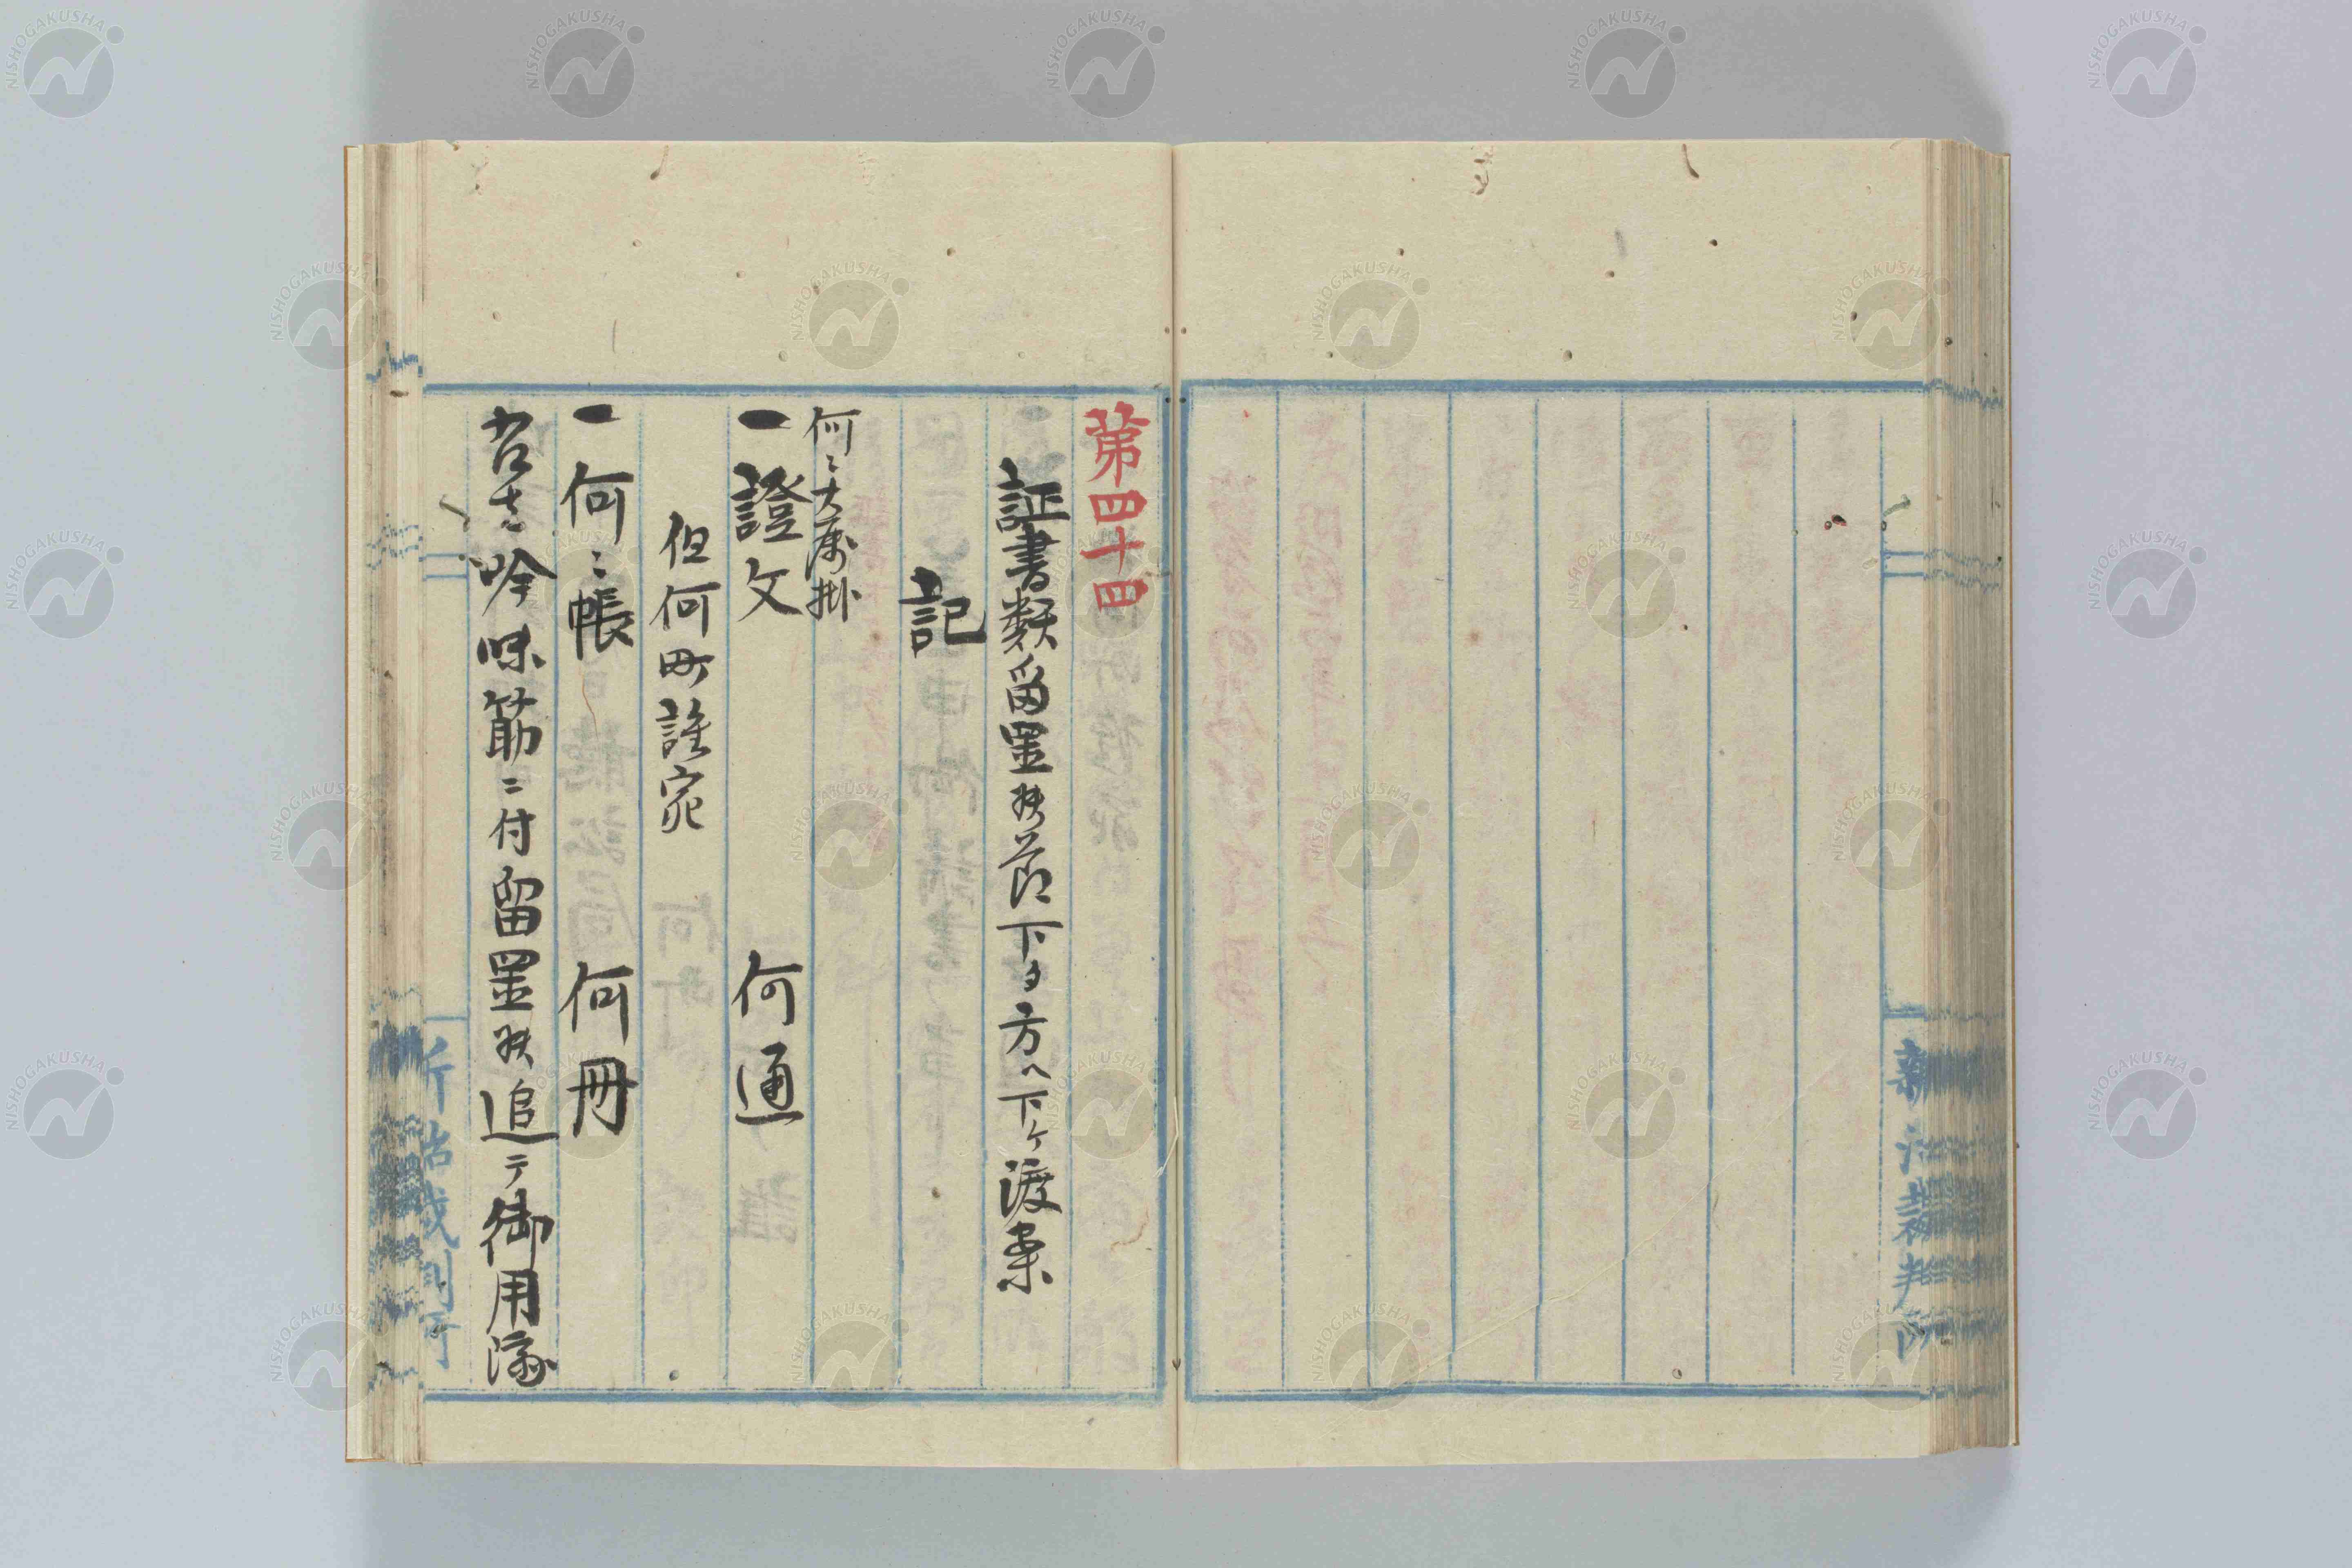 第四十四
証書類留置候節下タ方ヘ下ケ渡案
記
何〻大属掛
一證文 何通
但何町誰宛
一何〻帳 何冊
右者吟味筋ニ付留置候追テ御用済
新治裁判所
NISHOGAKUSHA